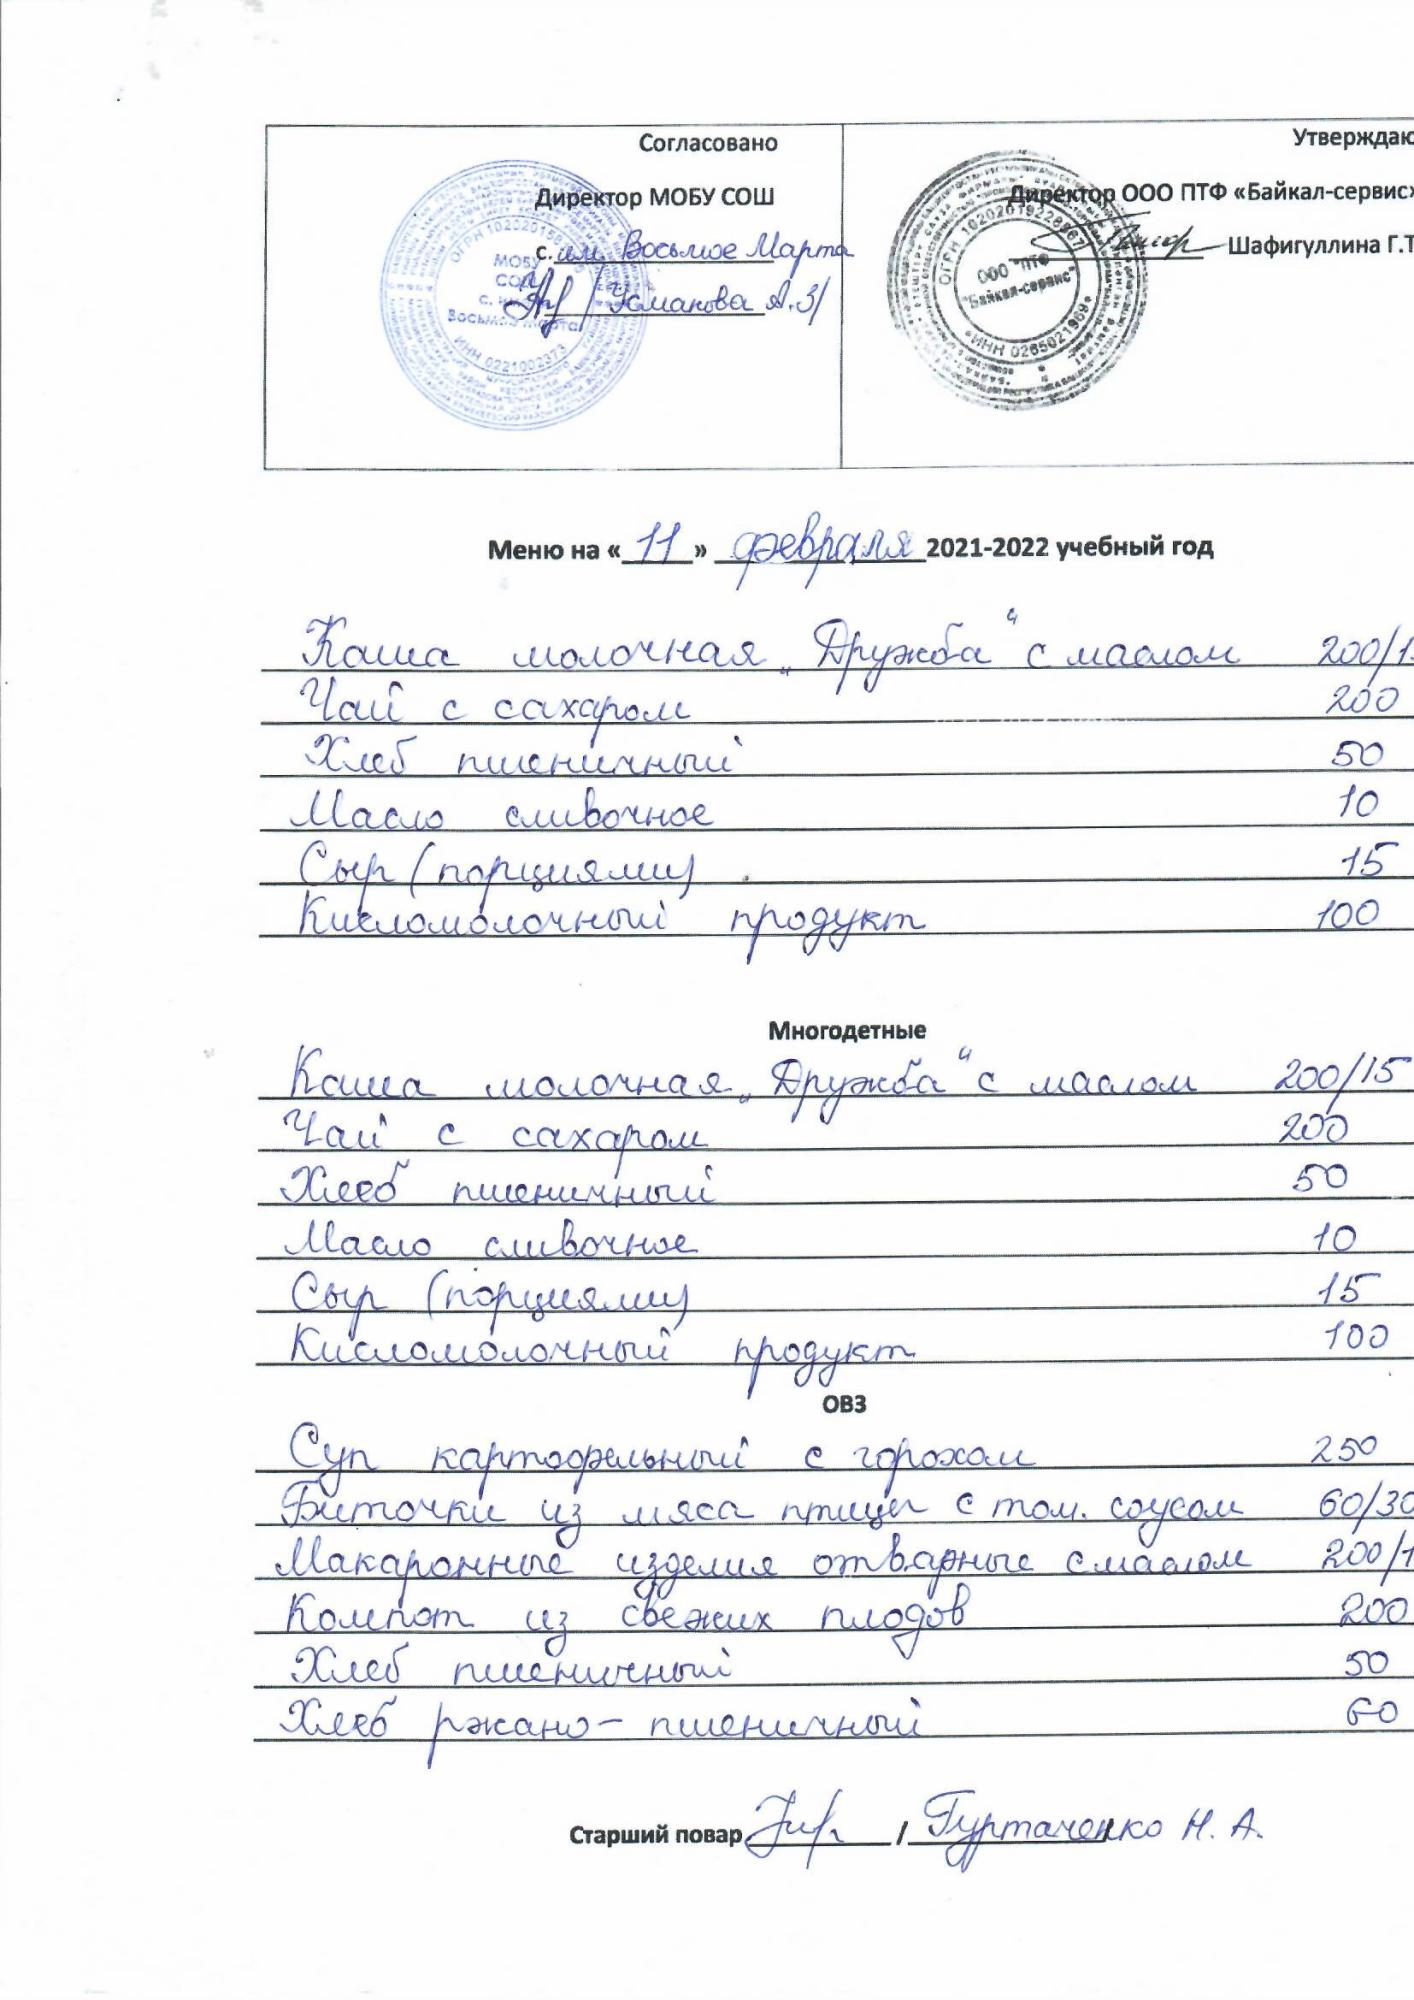 Согласовано
Директор МОБУ СОШ
с. им. Восьмое Марта
/ Усманова А.З/
ОГРН
МОБУ
СОШ
Восьмое Марта
ИНН 0221002373
Утверждаю
Директор ООО ПТФ «Байкал-сервис»
Шафигуллина Г.Т
ООО "ПТФ
"Байкал-сервис"
Меню на « 11 » февраля 2021-2022 учебный год
Каша молочная „Дружба“ с маслом 200/1
Чай с сахаром 200
Хлеб пшеничный 50
Масло сливочное 10
Сыр (порциями) 15
Кисломолочный продукт 100
Многодетные
Каша молочная „Дружба“ с маслом 200/15
Чай с сахаром 200
Хлеб пшеничный 50
Масло сливочное 10
Сыр (порциями) 15
Кисломолочный продукт 100
ОВЗ
Суп картофельный с горохом 250
Биточки из мяса птицы с том. соусом 60/30
Макаронные изделия отварные с маслом 200/1
Компот из свежих плодов 200
Хлеб пшеничный 50
Хлеб ржано-пшеничный 60
Старший повар / Гуртаченко Н. А.